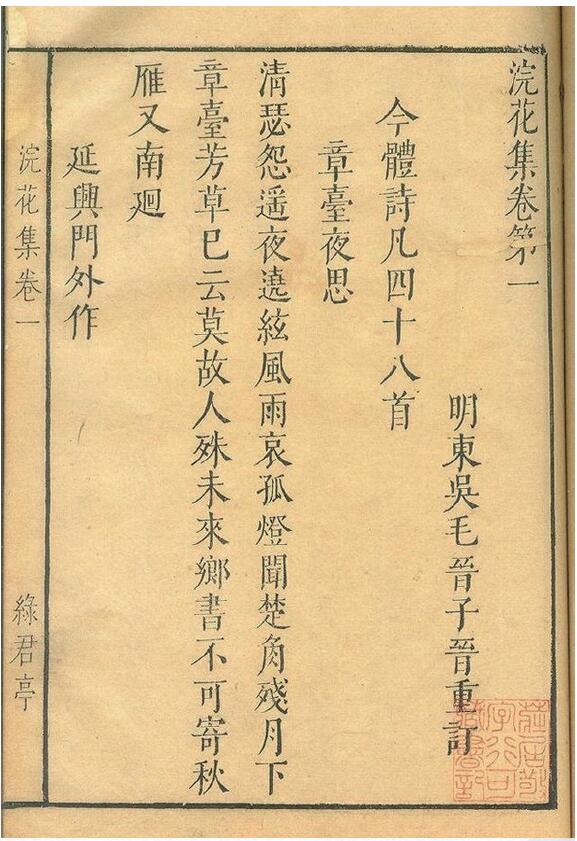 浣花集卷第一
明東吳毛晉子晉重訂
今體詩凡四十八首
章臺夜思
清瑟怨遥夜遶絃風雨哀孤燈聞楚角殘月下
章臺芳草巳云莫故人殊未來鄉書不可寄秋
雁又南廻
延興門外作
浣花集卷一
綠君亭